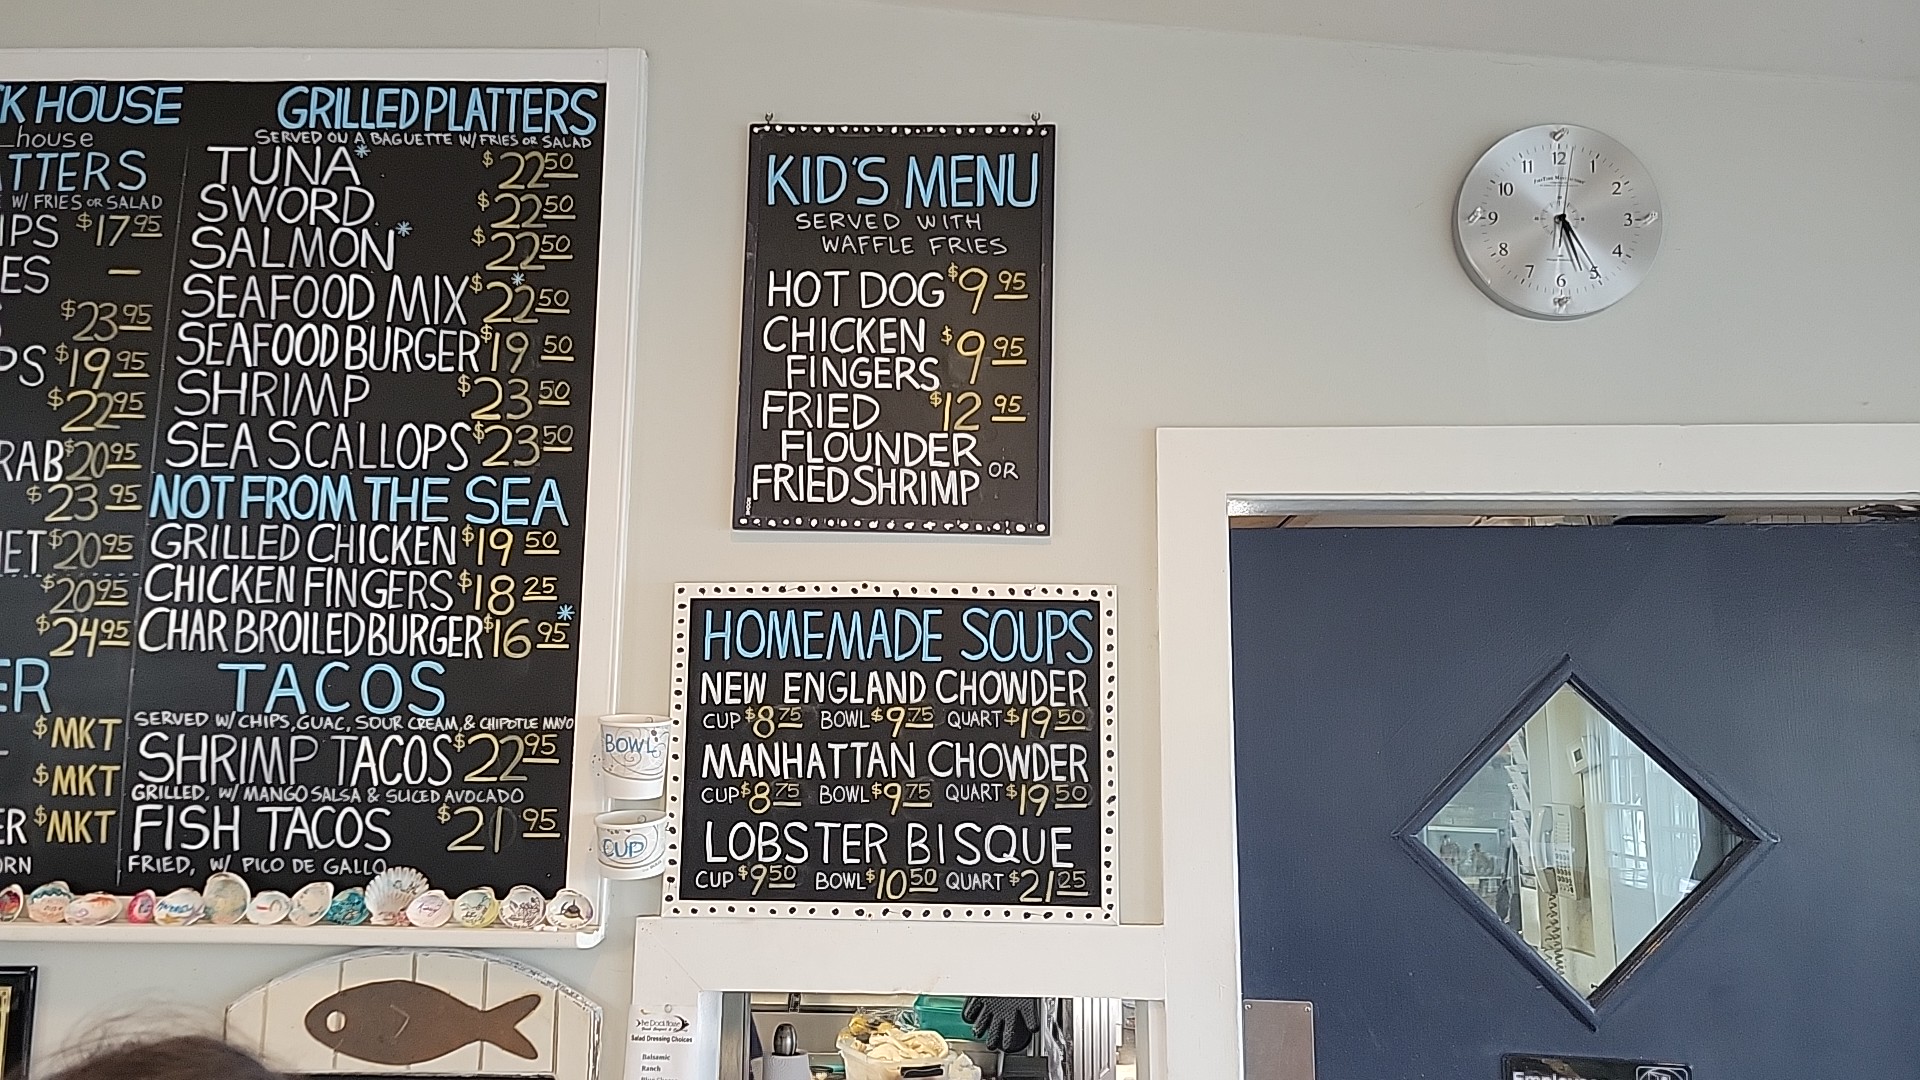 K HOUSE
house
TTERS
W/ FRIES OR SALAD
IPS $17.95
ES —
$23.95
PS $19.95
$22.95
RAB $20.95
$23.95
ET $20.95
$20.95
$24.95
ER
$MKT
$MKT
ER $MKT
ORN
GRILLED PLATTERS
SERVED ON A BAGUETTE W/ FRIES OR SALAD
TUNA* $22.50
SWORD $22.50
SALMON* $22.50
SEAFOOD MIX* $22.50
SEAFOOD BURGER $19.50
SHRIMP $23.50
SEA SCALLOPS $23.50
NOT FROM THE SEA
GRILLED CHICKEN $19.50
CHICKEN FINGERS $18.25
CHAR BROILED BURGER $16.95*
TACOS
SERVED W/ CHIPS, GUAC, SOUR CREAM, & CHIPOTLE MAYO
SHRIMP TACOS $22.95
GRILLED, W/ MANGO SALSA & SLICED AVOCADO
FISH TACOS $21.95
FRIED, W/ PICO DE GALLO
KID'S MENU
SERVED WITH
WAFFLE FRIES
HOT DOG $9.95
CHICKEN $9.95
FINGERS
FRIED $12.95
FLOUNDER OR
FRIED SHRIMP
BOWL
CUP
HOMEMADE SOUPS
NEW ENGLAND CHOWDER
CUP $8.75 BOWL $9.75 QUART $19.50
MANHATTAN CHOWDER
CUP $8.75 BOWL $9.75 QUART $19.50
LOBSTER BISQUE
CUP $9.50 BOWL $10.50 QUART $21.25
12 1 2 3 4 5 6 7 8 9 10 11
The Dock House
Salad Dressing Choices
Balsamic
Ranch
Employee